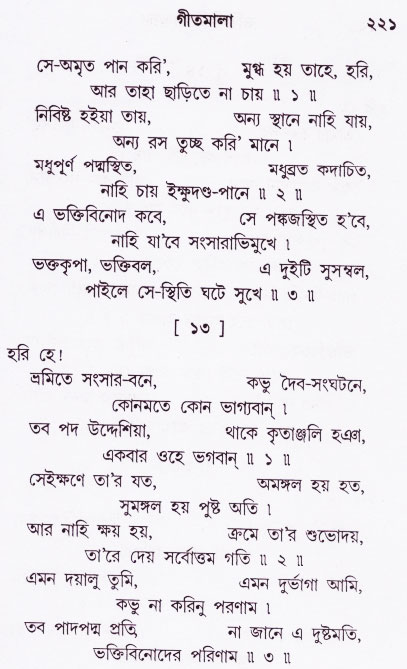 গীতমালা ২২১
সে-অমৃত পান করি', মুগ্ধ হয় তাহে, হরি,
আর তাহা ছাড়িতে না চায় ॥ ১ ॥
নিবিষ্ট হইয়া তায়, অন্য স্থানে নাহি যায়,
অন্য রস তুচ্ছ করি' মানে ।
মধুপূর্ণ পদ্মস্থিত, মধুব্রত কদাচিত,
নাহি চায় ইক্ষুদণ্ড-পানে ॥ ২ ॥
এ ভক্তিবিনোদ কবে, সে পঙ্কজস্থিত হ'বে,
নাহি যা'বে সংসারাভিমুখে ।
ভক্তকৃপা, ভক্তিবল, এ দুইটি সুসম্বল,
পাইলে সে-স্থিতি ঘটে সুখে ॥ ৩ ॥
[ ১৩ ]
হরি হে!
ভ্রমিতে সংসার-বনে, কভু দৈব-সংঘটনে,
কোনমতে কোন ভাগ্যবান্ ।
তব পদ উদ্দেশিয়া, থাকে কৃতাঞ্জলি হঞা,
একবার ওহে ভগবান্ ॥ ১ ॥
সেইক্ষণে তা'র যত, অমঙ্গল হয় হত,
সুমঙ্গল হয় পুষ্ট অতি ।
আর নাহি ক্ষয় হয়, ক্রমে তা'র শুভোদয়,
তা'রে দেয় সর্বোত্তম গতি ॥ ২ ॥
এমন দয়ালু তুমি, এমন দুর্ভাগা আমি,
কভু না করিনু পরণাম ।
তব পাদপদ্ম প্রতি, না জানে এ দুষ্টমতি,
ভক্তিবিনোদের পরিণাম ॥ ৩ ॥